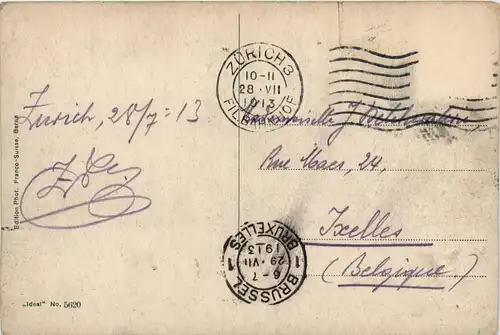 ZÜRICH 3
10-11
28·VII
1913
FIL. BAHNHOF
Zurich, 28/7 = 13
Mademoiselle J
Rue Maes, 24,
Ixelles
(Belgique)
BRUXELLES
1913
29·VII
6-7
1 1
BRUSSEL
Edition Phot. Franco-Suisse, Berne
„Ideal" No. 5620